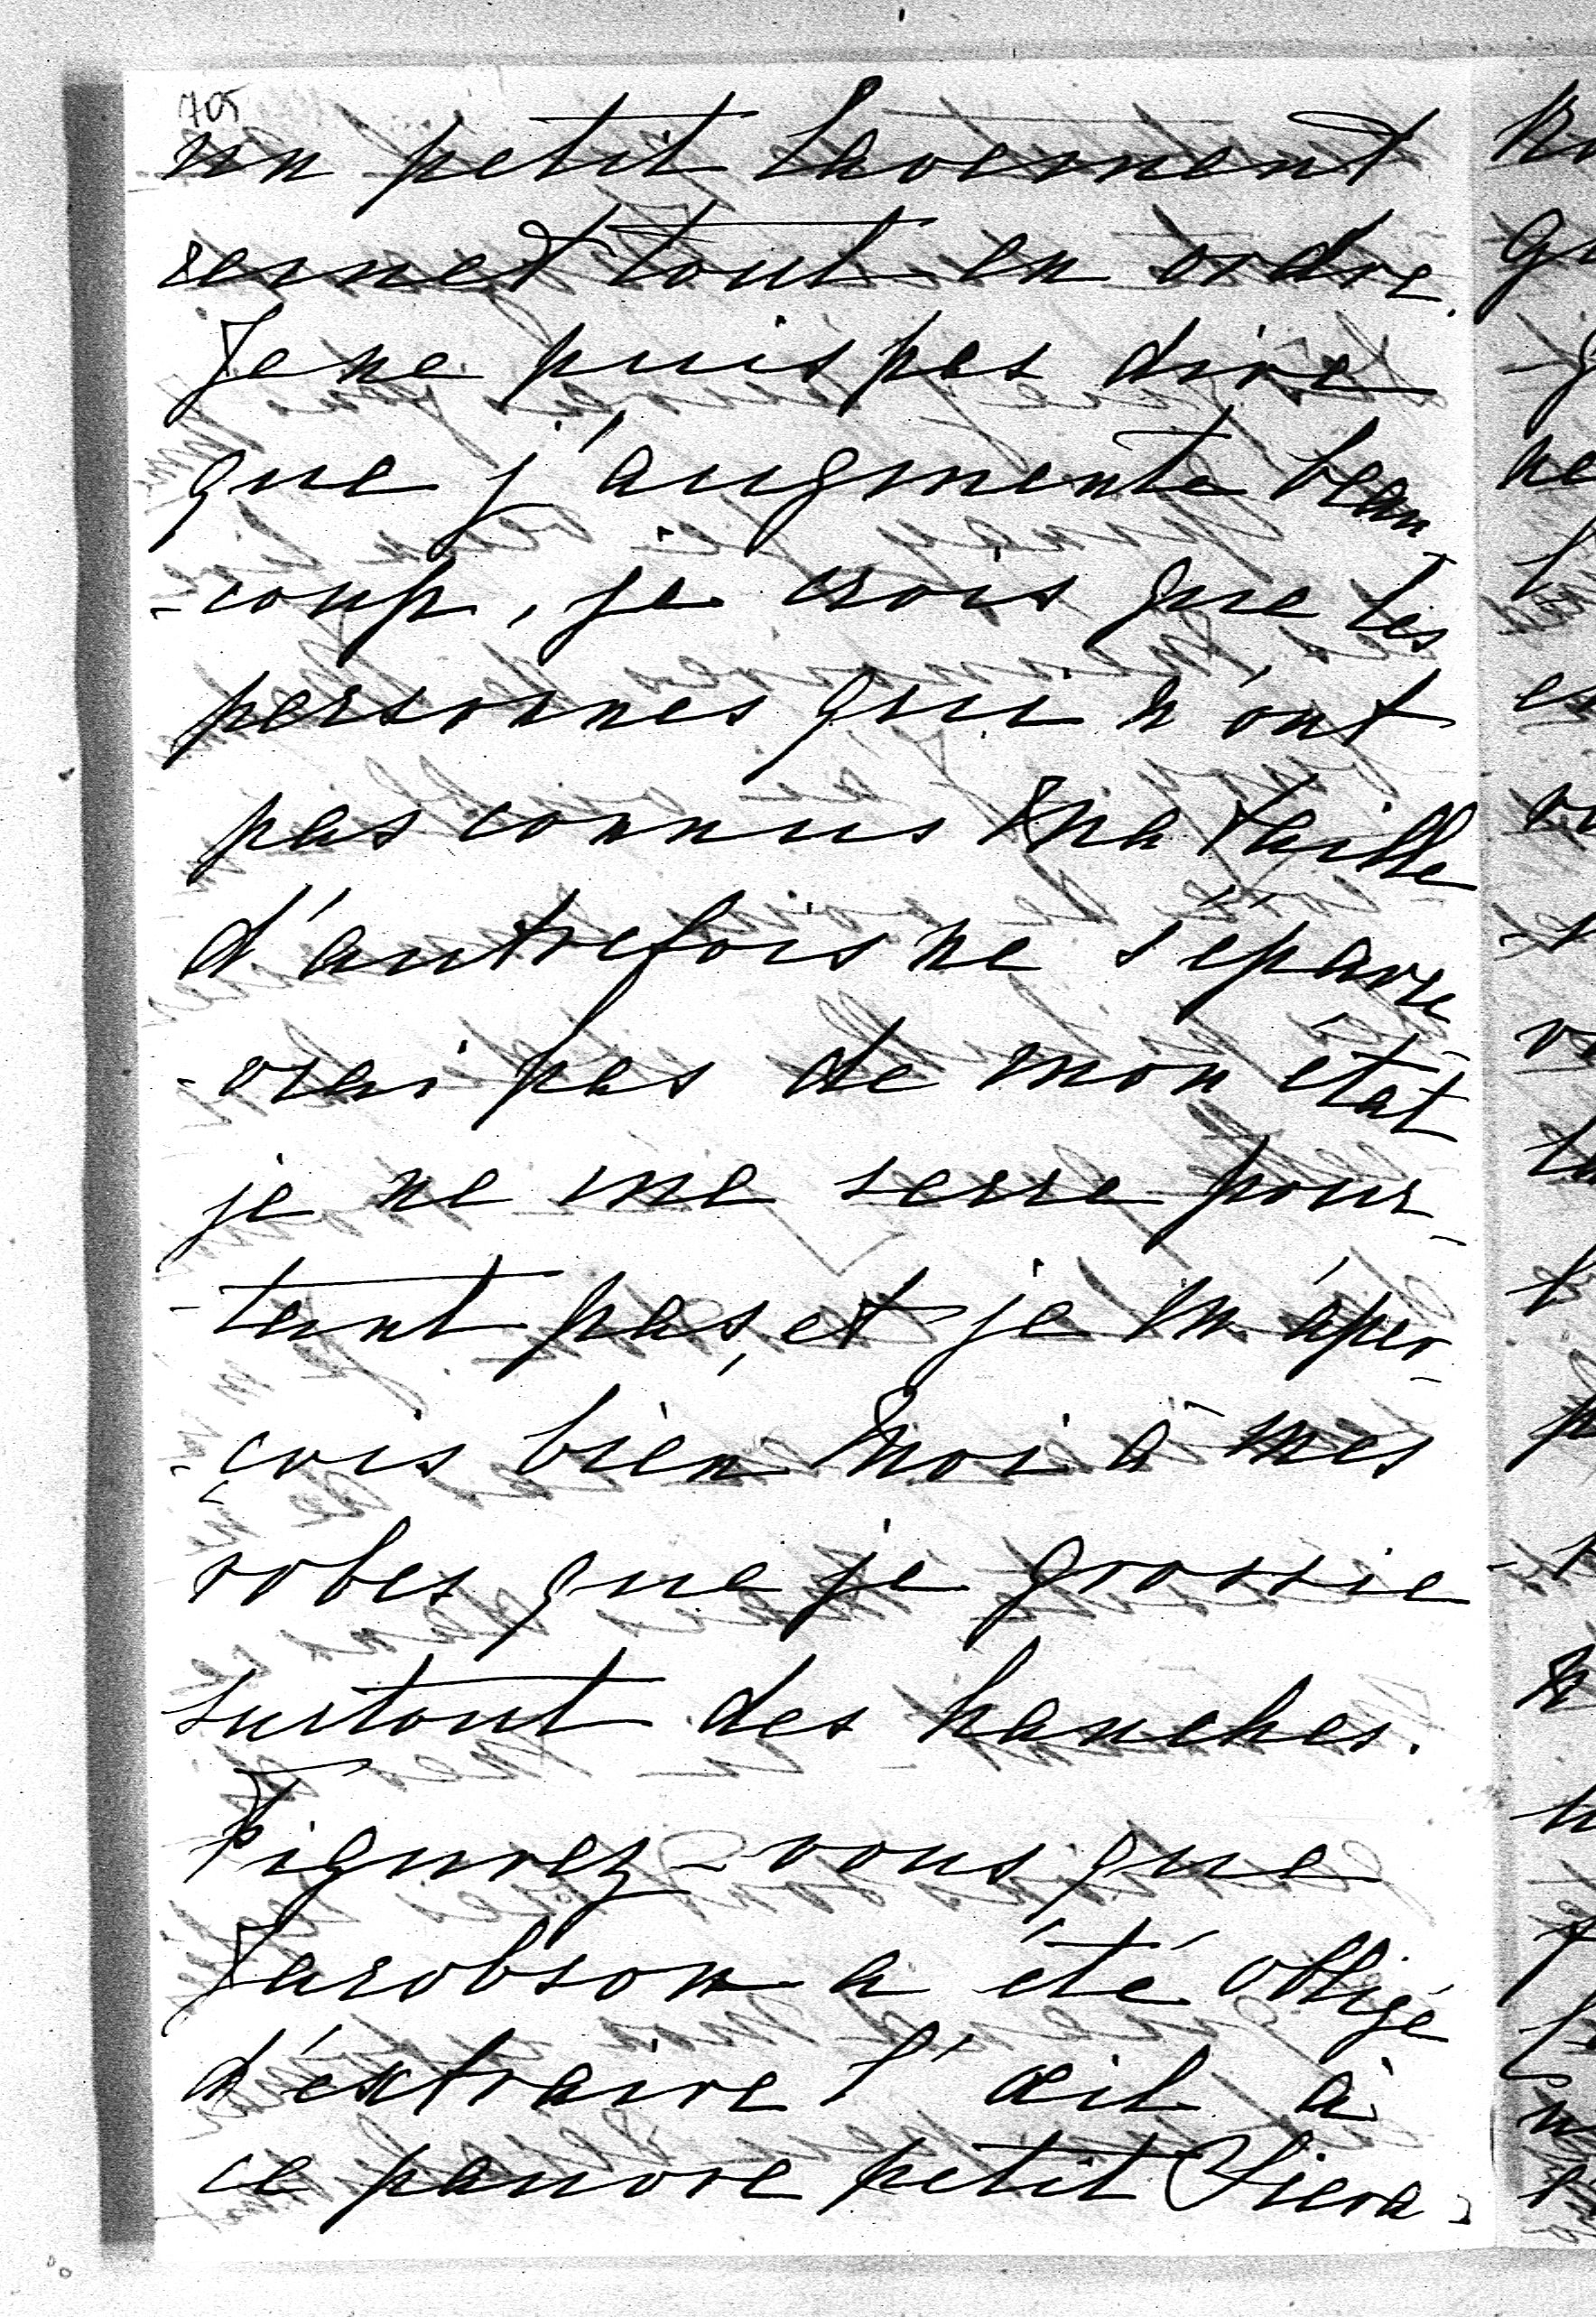 705
un petit lavement
remet tout en ordre.
Je ne puis pas dire
que j'augmente beau-
-coup, je crois que les
personnes qui n'ont
pas connus ma taille
d'autrefois ne s'éparce
-vrai pas de mon état
je ne me serre pour-
-tant pas, et je m'aper-
-çois bien moi à mes
robes que je grossie
surtout des hanches.
Figurez-vous que
Jacobson a été obligé
d'extraire l'œil à
ce pauvre petit